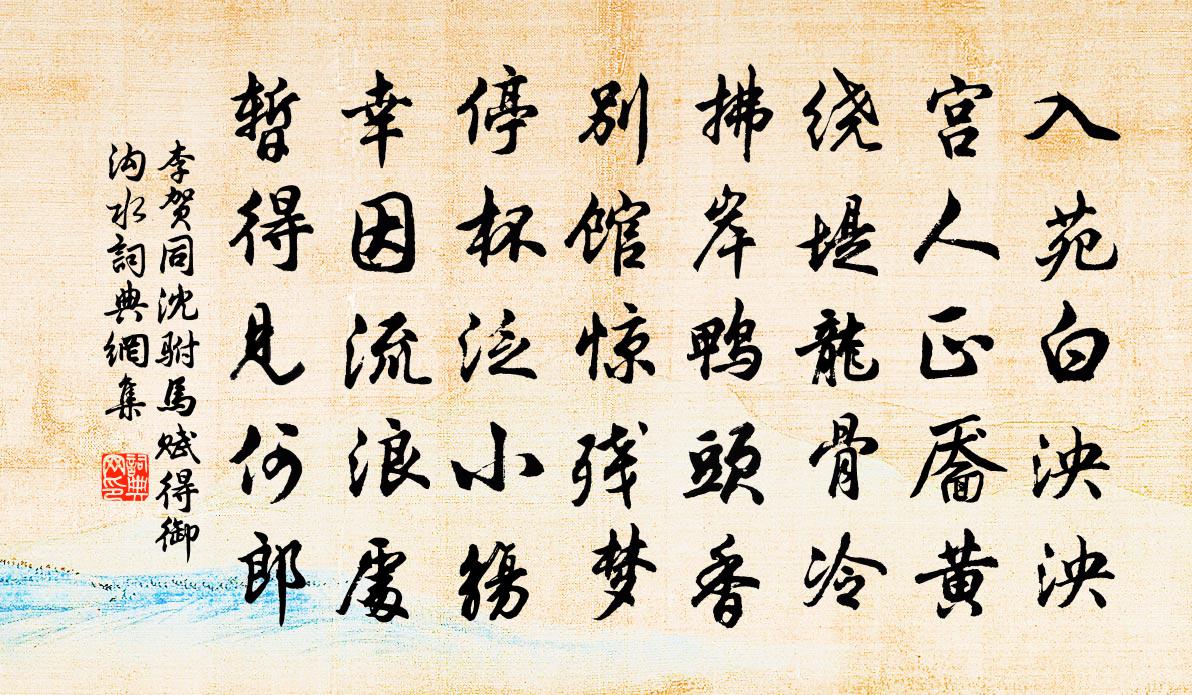 入苑白泱泱
宫人正靥黄
绕堤龍骨冷
拂岸鸭頭香
别馆惊残梦
停杯泛小觞
幸因流浪處
暫得見何郎
李贺同沈駙馬赋得御
沟水詞典網集
詞典
网印